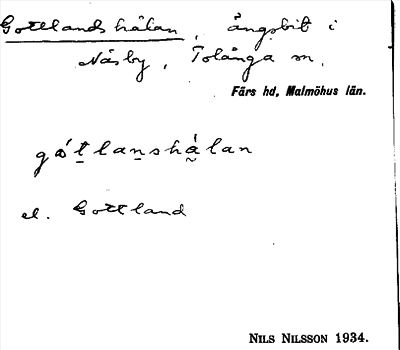 Gottlandshålan, ängsbit i
Näsby, Tolånga sn.
Färs hd, Malmöhus län.
gót̲lan̲shå̀lan
el. Gottland
NILS NILSSON 1934.